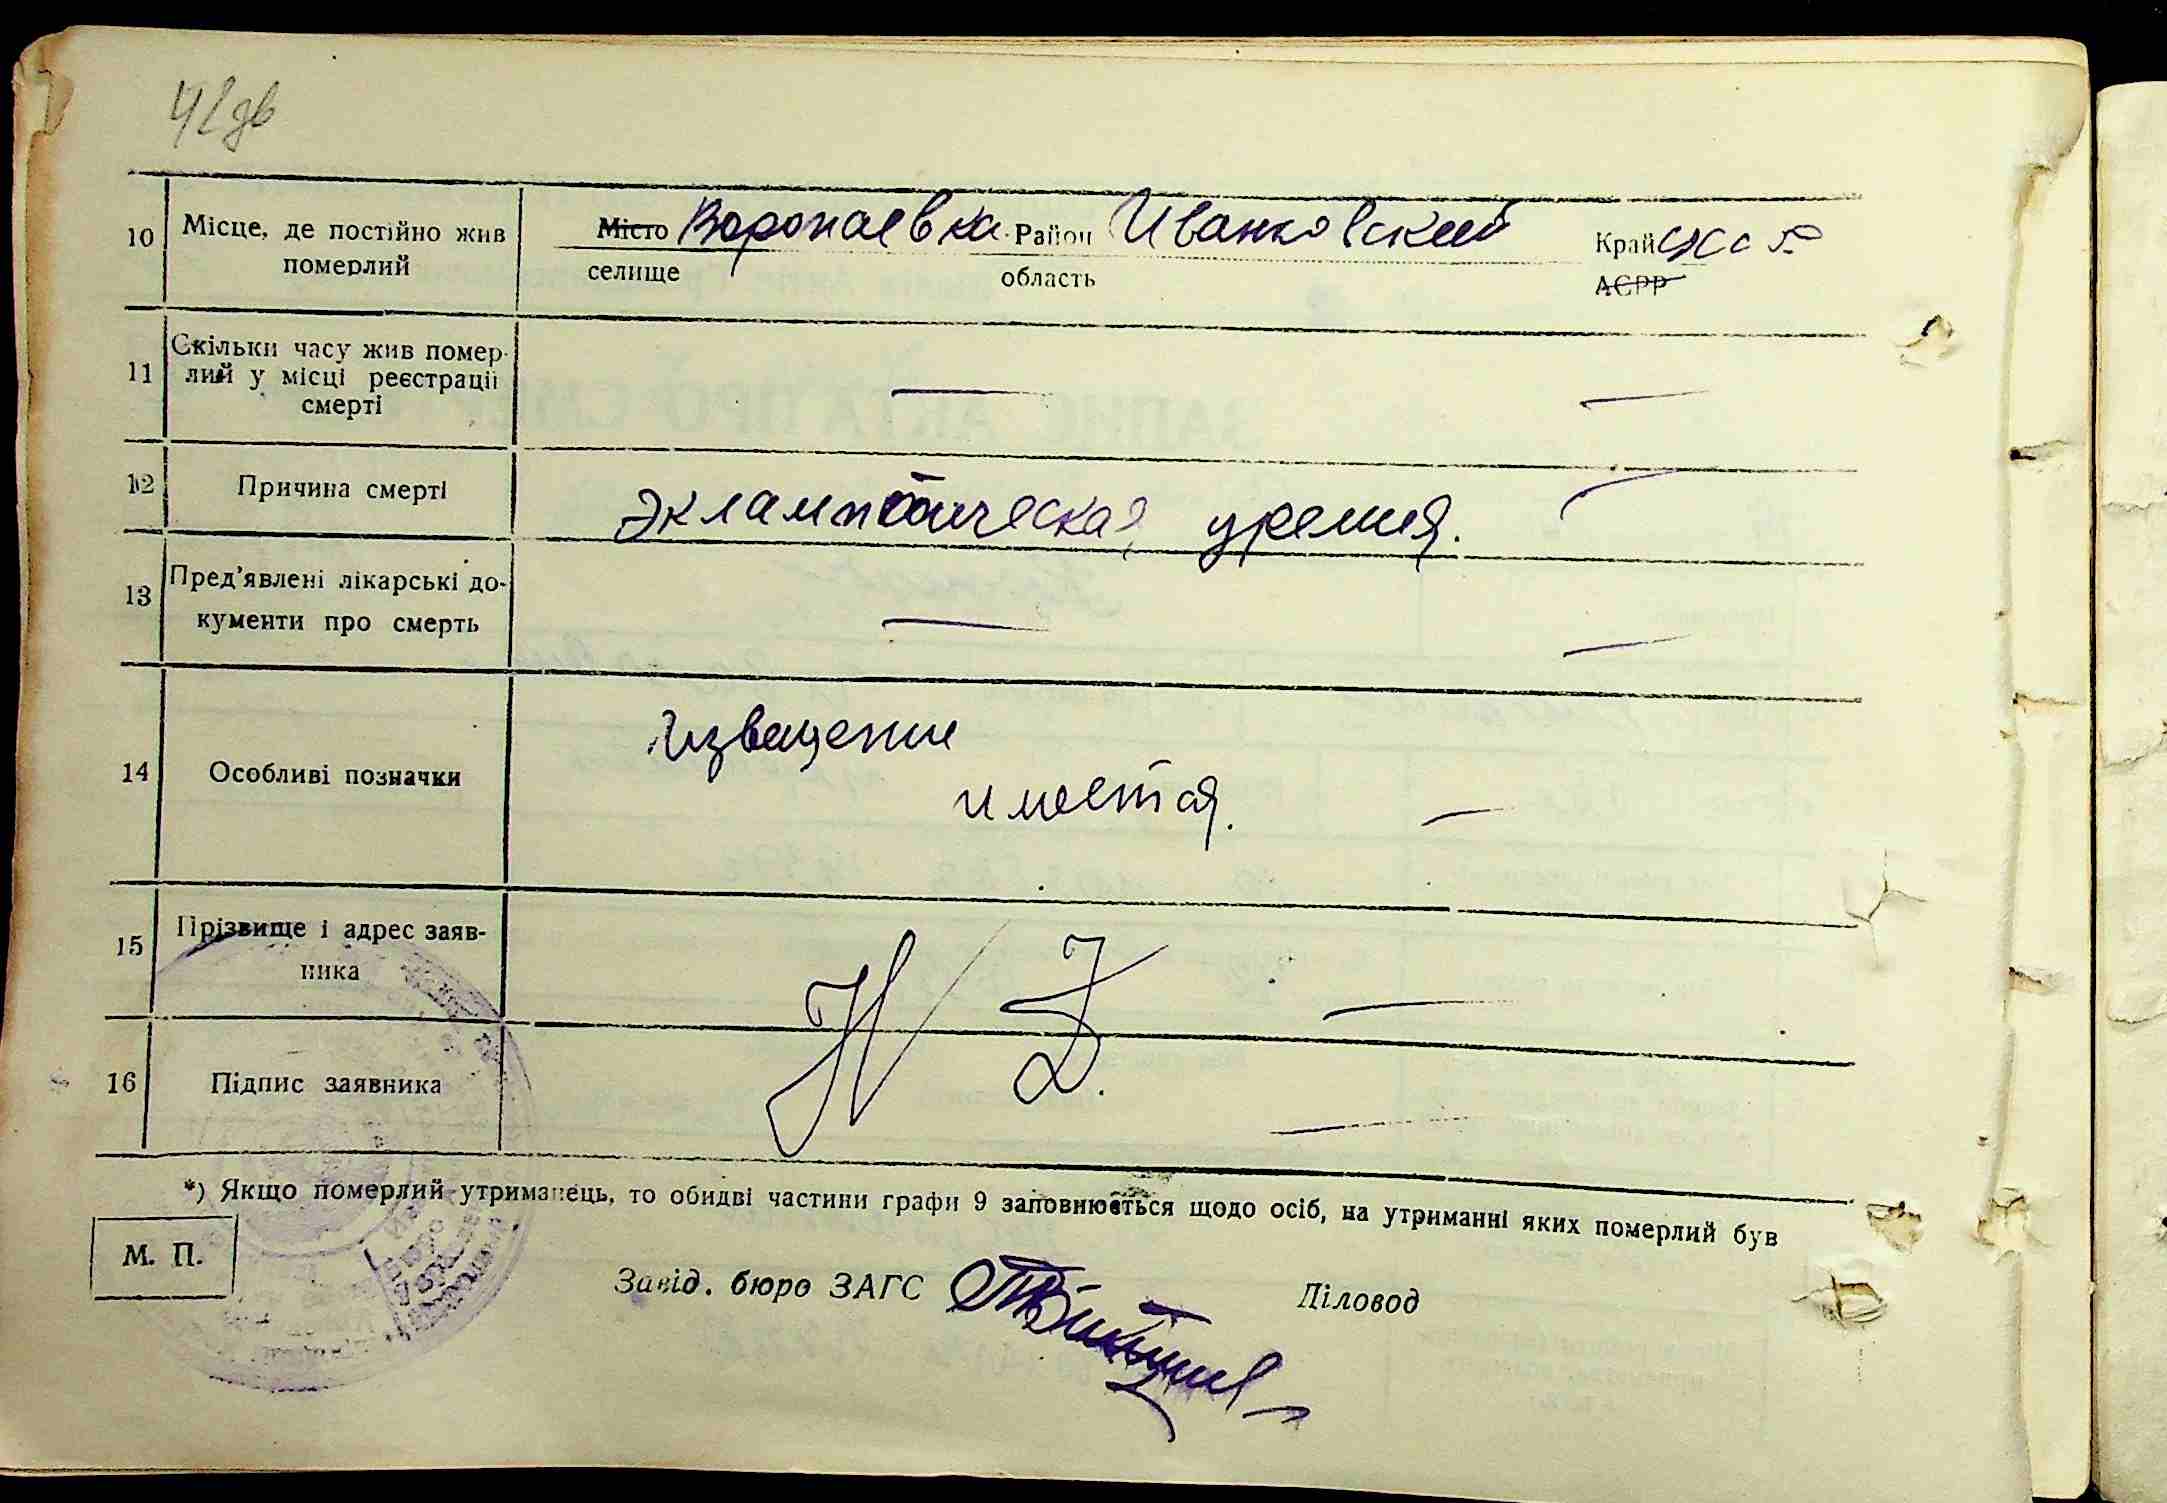 10 Місце, де постійно жив
померлий
Місто Воропаевка Район Иванковский Край
селище область АСРР
11 Скільки часу жив помер-
лий у місці реєстрації
смерті
— —
12 Причина смерті Экламптическая уремия.
13 Пред'явлені лікарські до-
кументи про смерть
— —
14 Особливі позначки
Извещение
имеется. —
15 Прізвище і адрес заяв-
ника
—
16 Підпис заявника
—
*) Якщо померлий утриманець, то обидві частини графи 9 заповнюється щодо осіб, на утриманні яких померлий був
М. П.
Завід. бюро ЗАГС Діловод